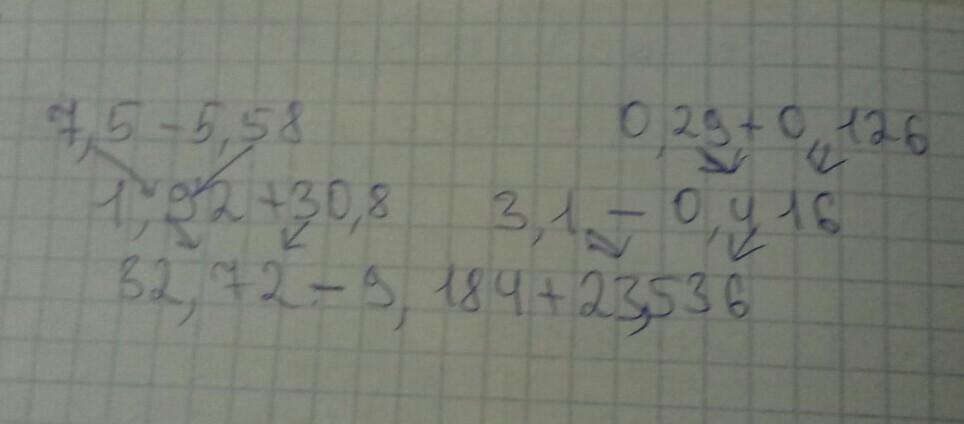 7,5-5,58 0,29+0,126
1,92+30,8 3,1-0,416
32,72-9,184+23,536